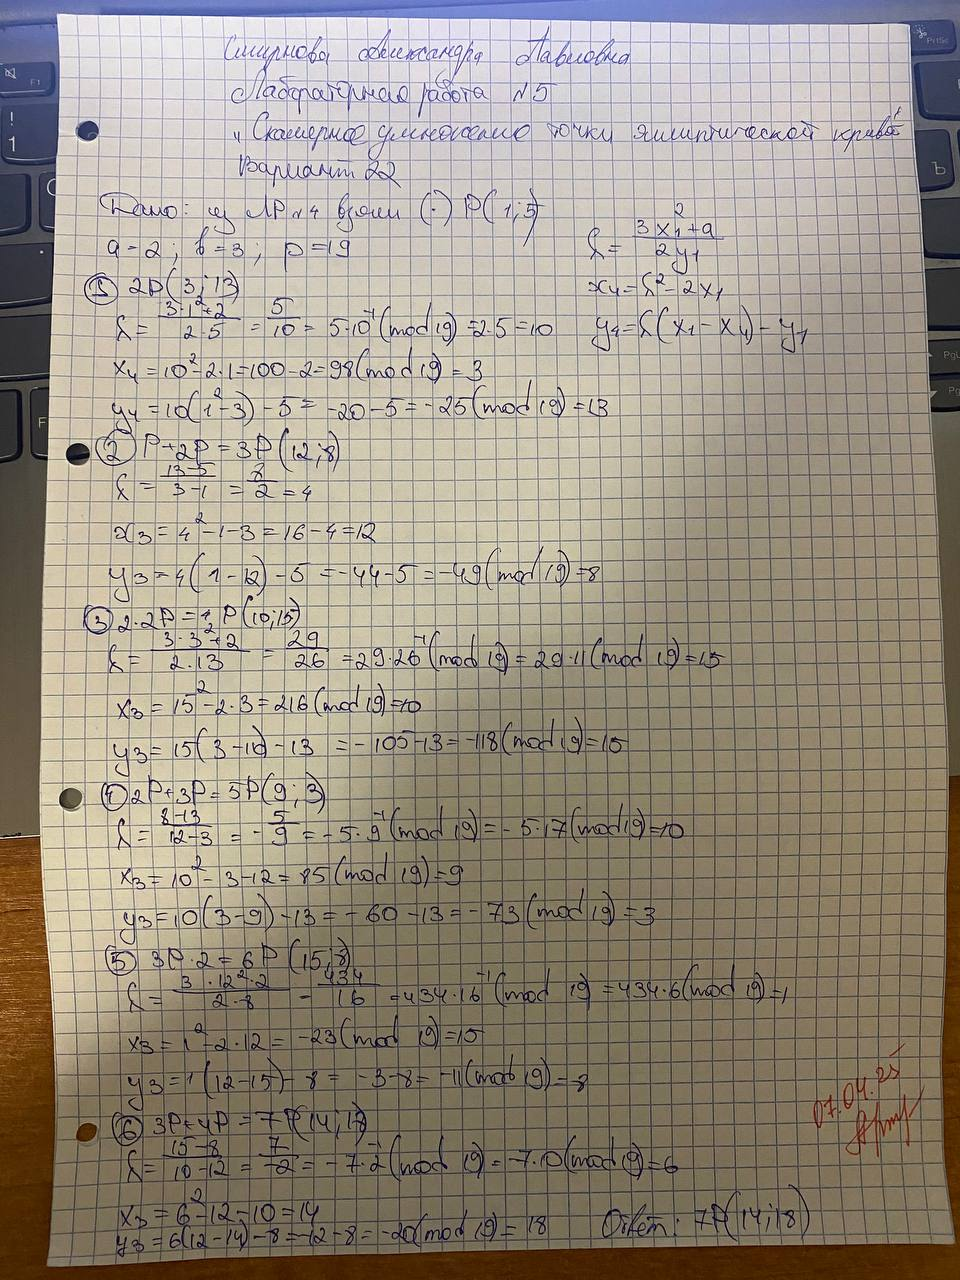 Смирнова Александра Павловна
Лабораторная работа №5
"Скалярное умножение точки эллиптической кривой"
Вариант 22
Дано: из ЛР №4 взяли (·) P(1;5)
a=2; b=3; p=19
λ = (3x₁²+a)/(2y₁)
x₄=λ²-2x₁
y₄=λ(x₁-x₄)-y₁
① 2P(3;13)
λ = (3·1²+2)/(2·5) = 5/10 = 5·10⁻¹(mod 19) = 2·5=10
x₄ = 10²-2·1=100-2=98(mod 19)=3
y₄ = 10(1²-3)-5 = -20-5=-25(mod 19)=13
② P+2P=3P(12;8)
λ = (13-5)/(3-1) = 8/2 = 4
x₃ = 4²-1-3=16-4=12
y₃=4(1-12)-5=-44-5=-49(mod 19)=8
③ 2·2P=4P(10;15)
λ = (3·3²+2)/(2·13) = 29/26 = 29·26⁻¹(mod 19) = 29·11(mod 19)=15
x₃ = 15²-2·3=216(mod 19)=10
y₃ = 15(3-10)-13 = -105-13=-118(mod 19)=15
④ 2P+3P=5P(9;3)
λ = (8-13)/(12-3) = -5/9 = -5·9⁻¹(mod 19) = -5·17(mod 19)=10
x₃=10²-3-12=85(mod 19)=9
y₃=10(3-9)-13=-60-13=-73(mod 19)=3
⑤ 3P·2=6P(15;8)
λ = (3·12²·2)/(2·8) = 434/16 = 434·16⁻¹(mod 19) = 434·6(mod 19)=1
x₃ = 1²-2·12 = -23(mod 19)=15
y₃=1(12-15)-8 = -3-8=-11(mod 19)=8
⑥ 3P+4P=7P(14;18)
λ = (15-8)/(10-12) = 7/-2 = -7·2⁻¹(mod 19) = -7·10(mod 19)=6
x₃ = 6²-12-10=14
y₃=6(12-14)-8=-12-8=-20(mod 19)=18
Ответ: 7P(14;18)
07.04.25